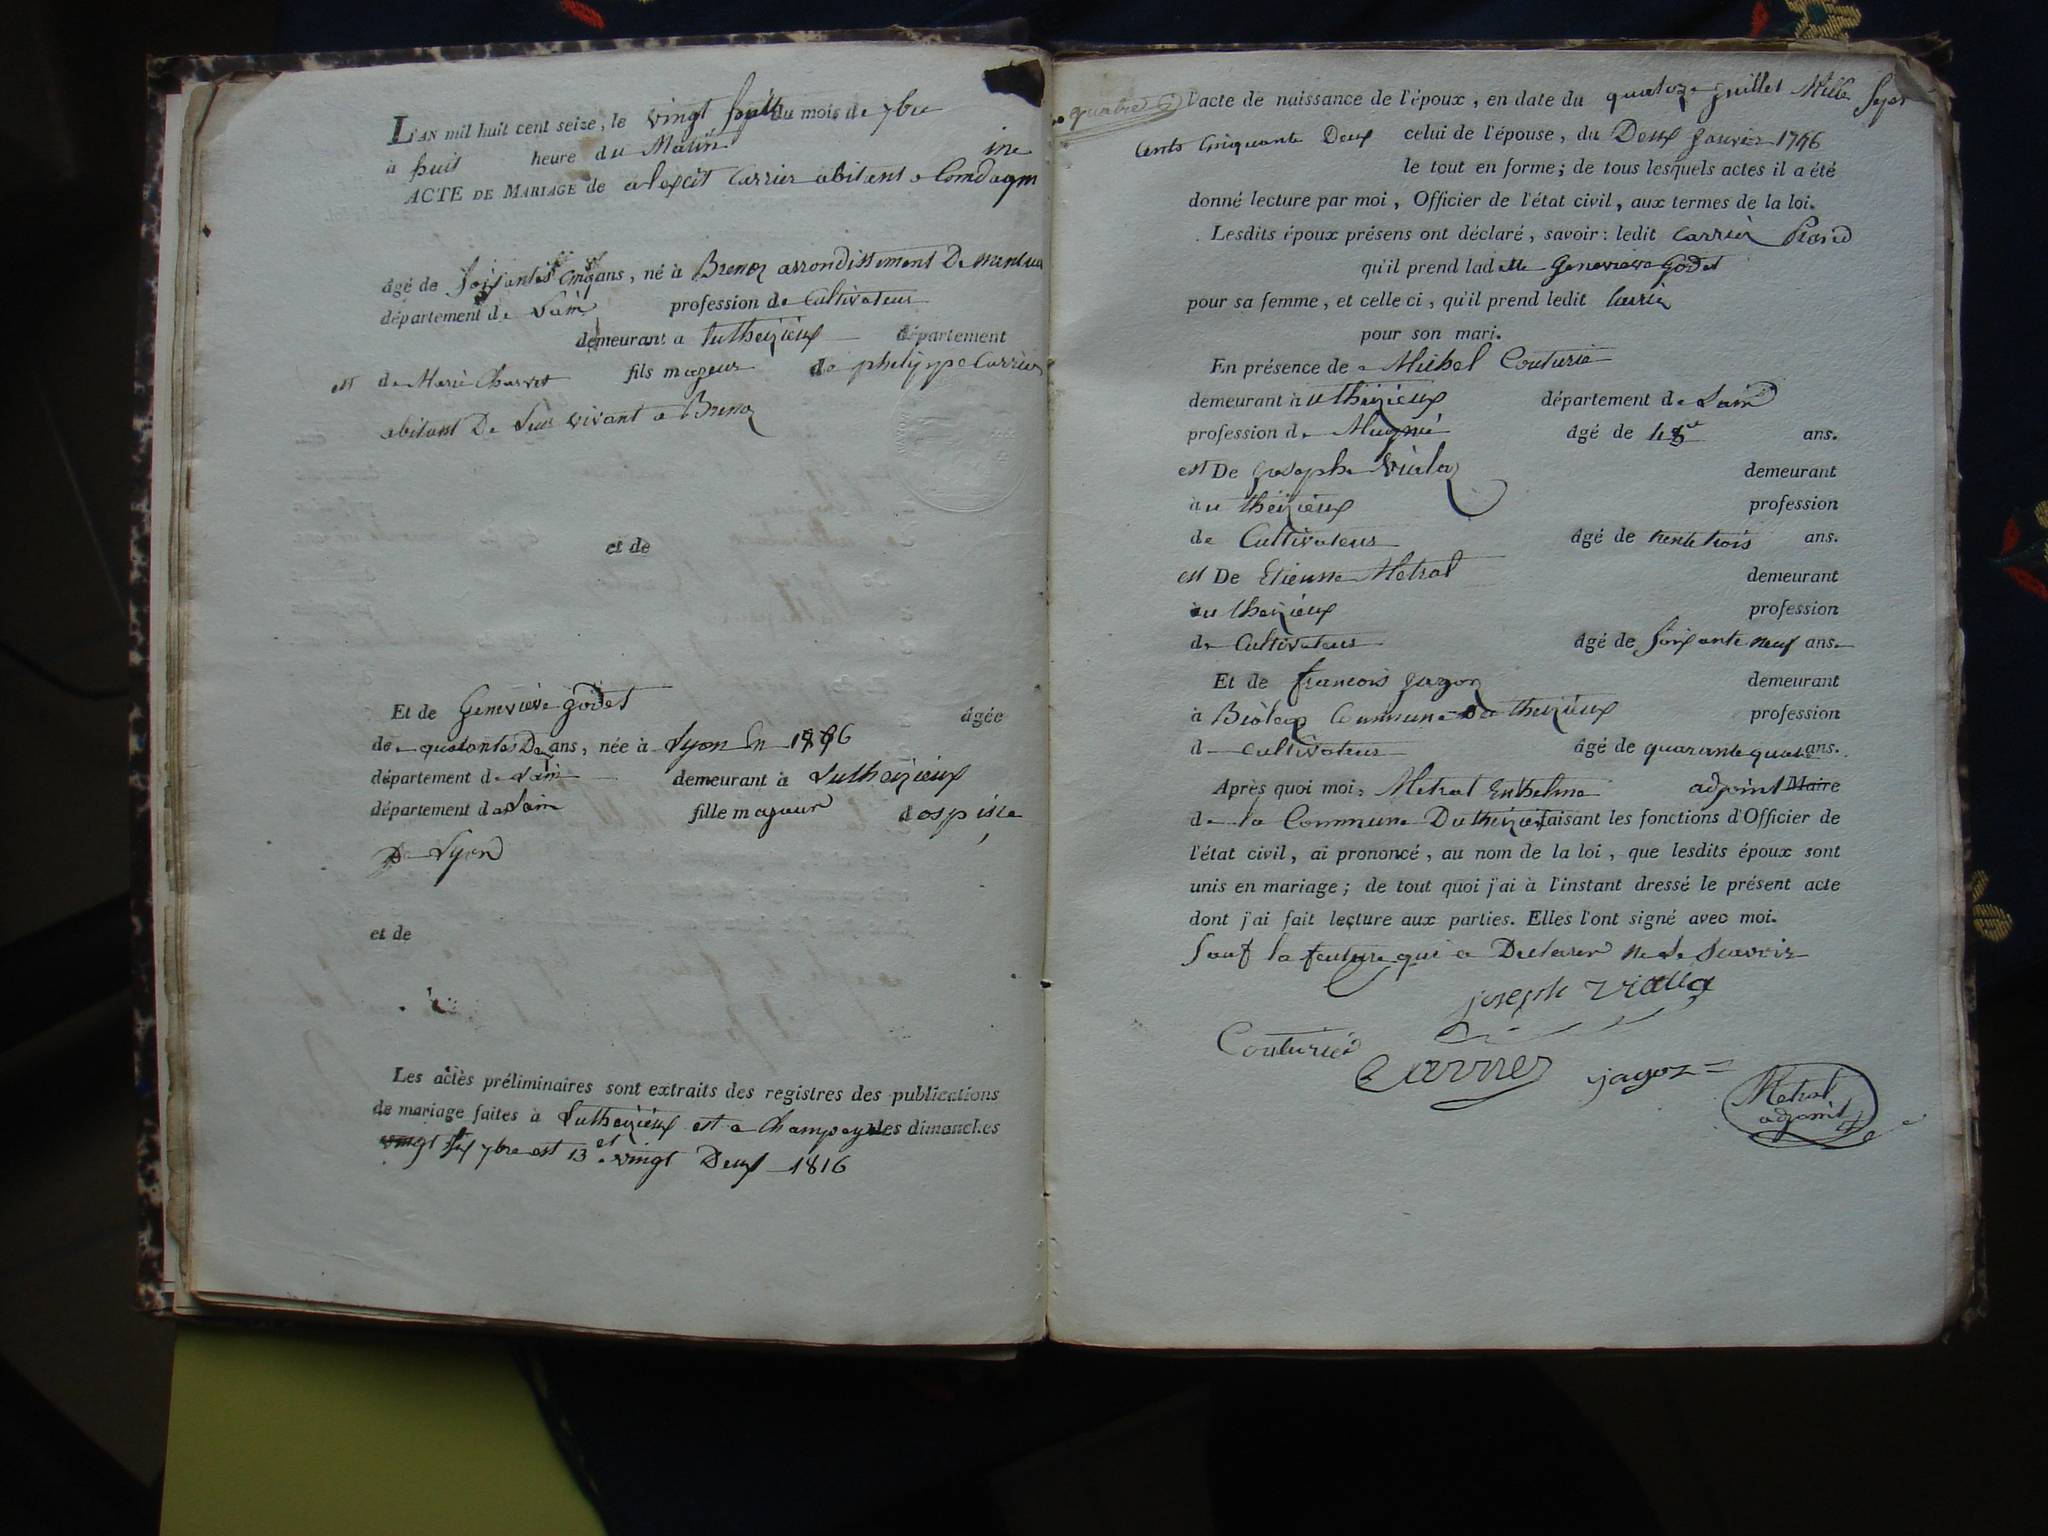 L'AN mil huit cent seize, le vingt huit du mois de 7bre
à huit heure du Matin
ACTE DE MARIAGE de alexcit Carrier abitant a Comdagm
ine
âgé de soixantes cinq ans, né à Brenoz arrondissement De nantua
département de Lain profession de Cultivateur
demeurant a Lutheizieux département
est de Marie Charvet fils majeur de philippe Carrier
abitant De leur vivant a Brenoz
et de
Et de Geneviève godet âgée
de quarantes Dex ans, née à Lyon En 1776
département de Lain demeurant à Lutheizieux
département de Lain fille majeur dospice
De Lyon
et de
Les actes préliminaires sont extraits des registres des publications
de mariage faites à Lutheizieux est a Champey les dimanches
7bre est 13 et vingt Deux 1816
quatre
l'acte de naissance de l'époux, en date du quatoze juillet Mille Sept
Cents Cinquante Deux celui de l'épouse, du Deux Janvier 1776
le tout en forme; de tous lesquels actes il a été
donné lecture par moi, Officier de l'état civil, aux termes de la loi.
Lesdits époux présens ont déclaré, savoir: ledit Carrier
qu'il prend ladette Genevieve Godet
pour sa femme, et celle ci, qu'il prend ledit Carrier
pour son mari.
En présence de Michel Couturie
demeurant à utheizieux département de Lain
profession de Mugnié âgé de 48 ans.
est De Joseph Vialaz demeurant
à utheizieux profession
de Cultivateur âgé de trente trois ans.
est De Etienne Metral demeurant
à utheizieux profession
de Cultivateur âgé de soixante neuf ans.
Et de francois jagoz demeurant
à Biolaz Commune dutheizieux profession
de cultivateur âgé de quarante quatre ans.
Après quoi moi, Metral Enthelme adjoint Maire
de la Commune Dutheizieux faisant les fonctions d'Officier de
l'état civil, ai prononcé, au nom de la loi, que lesdits époux sont
unis en mariage; de tout quoi j'ai à l'instant dressé le présent acte
dont j'ai fait lecture aux parties. Elles l'ont signé avec moi.
Sauf la future qui a Declarer ne Le Scavoir
joseph vialla
Couturier
Carrier jagoz
Metral
adjoint